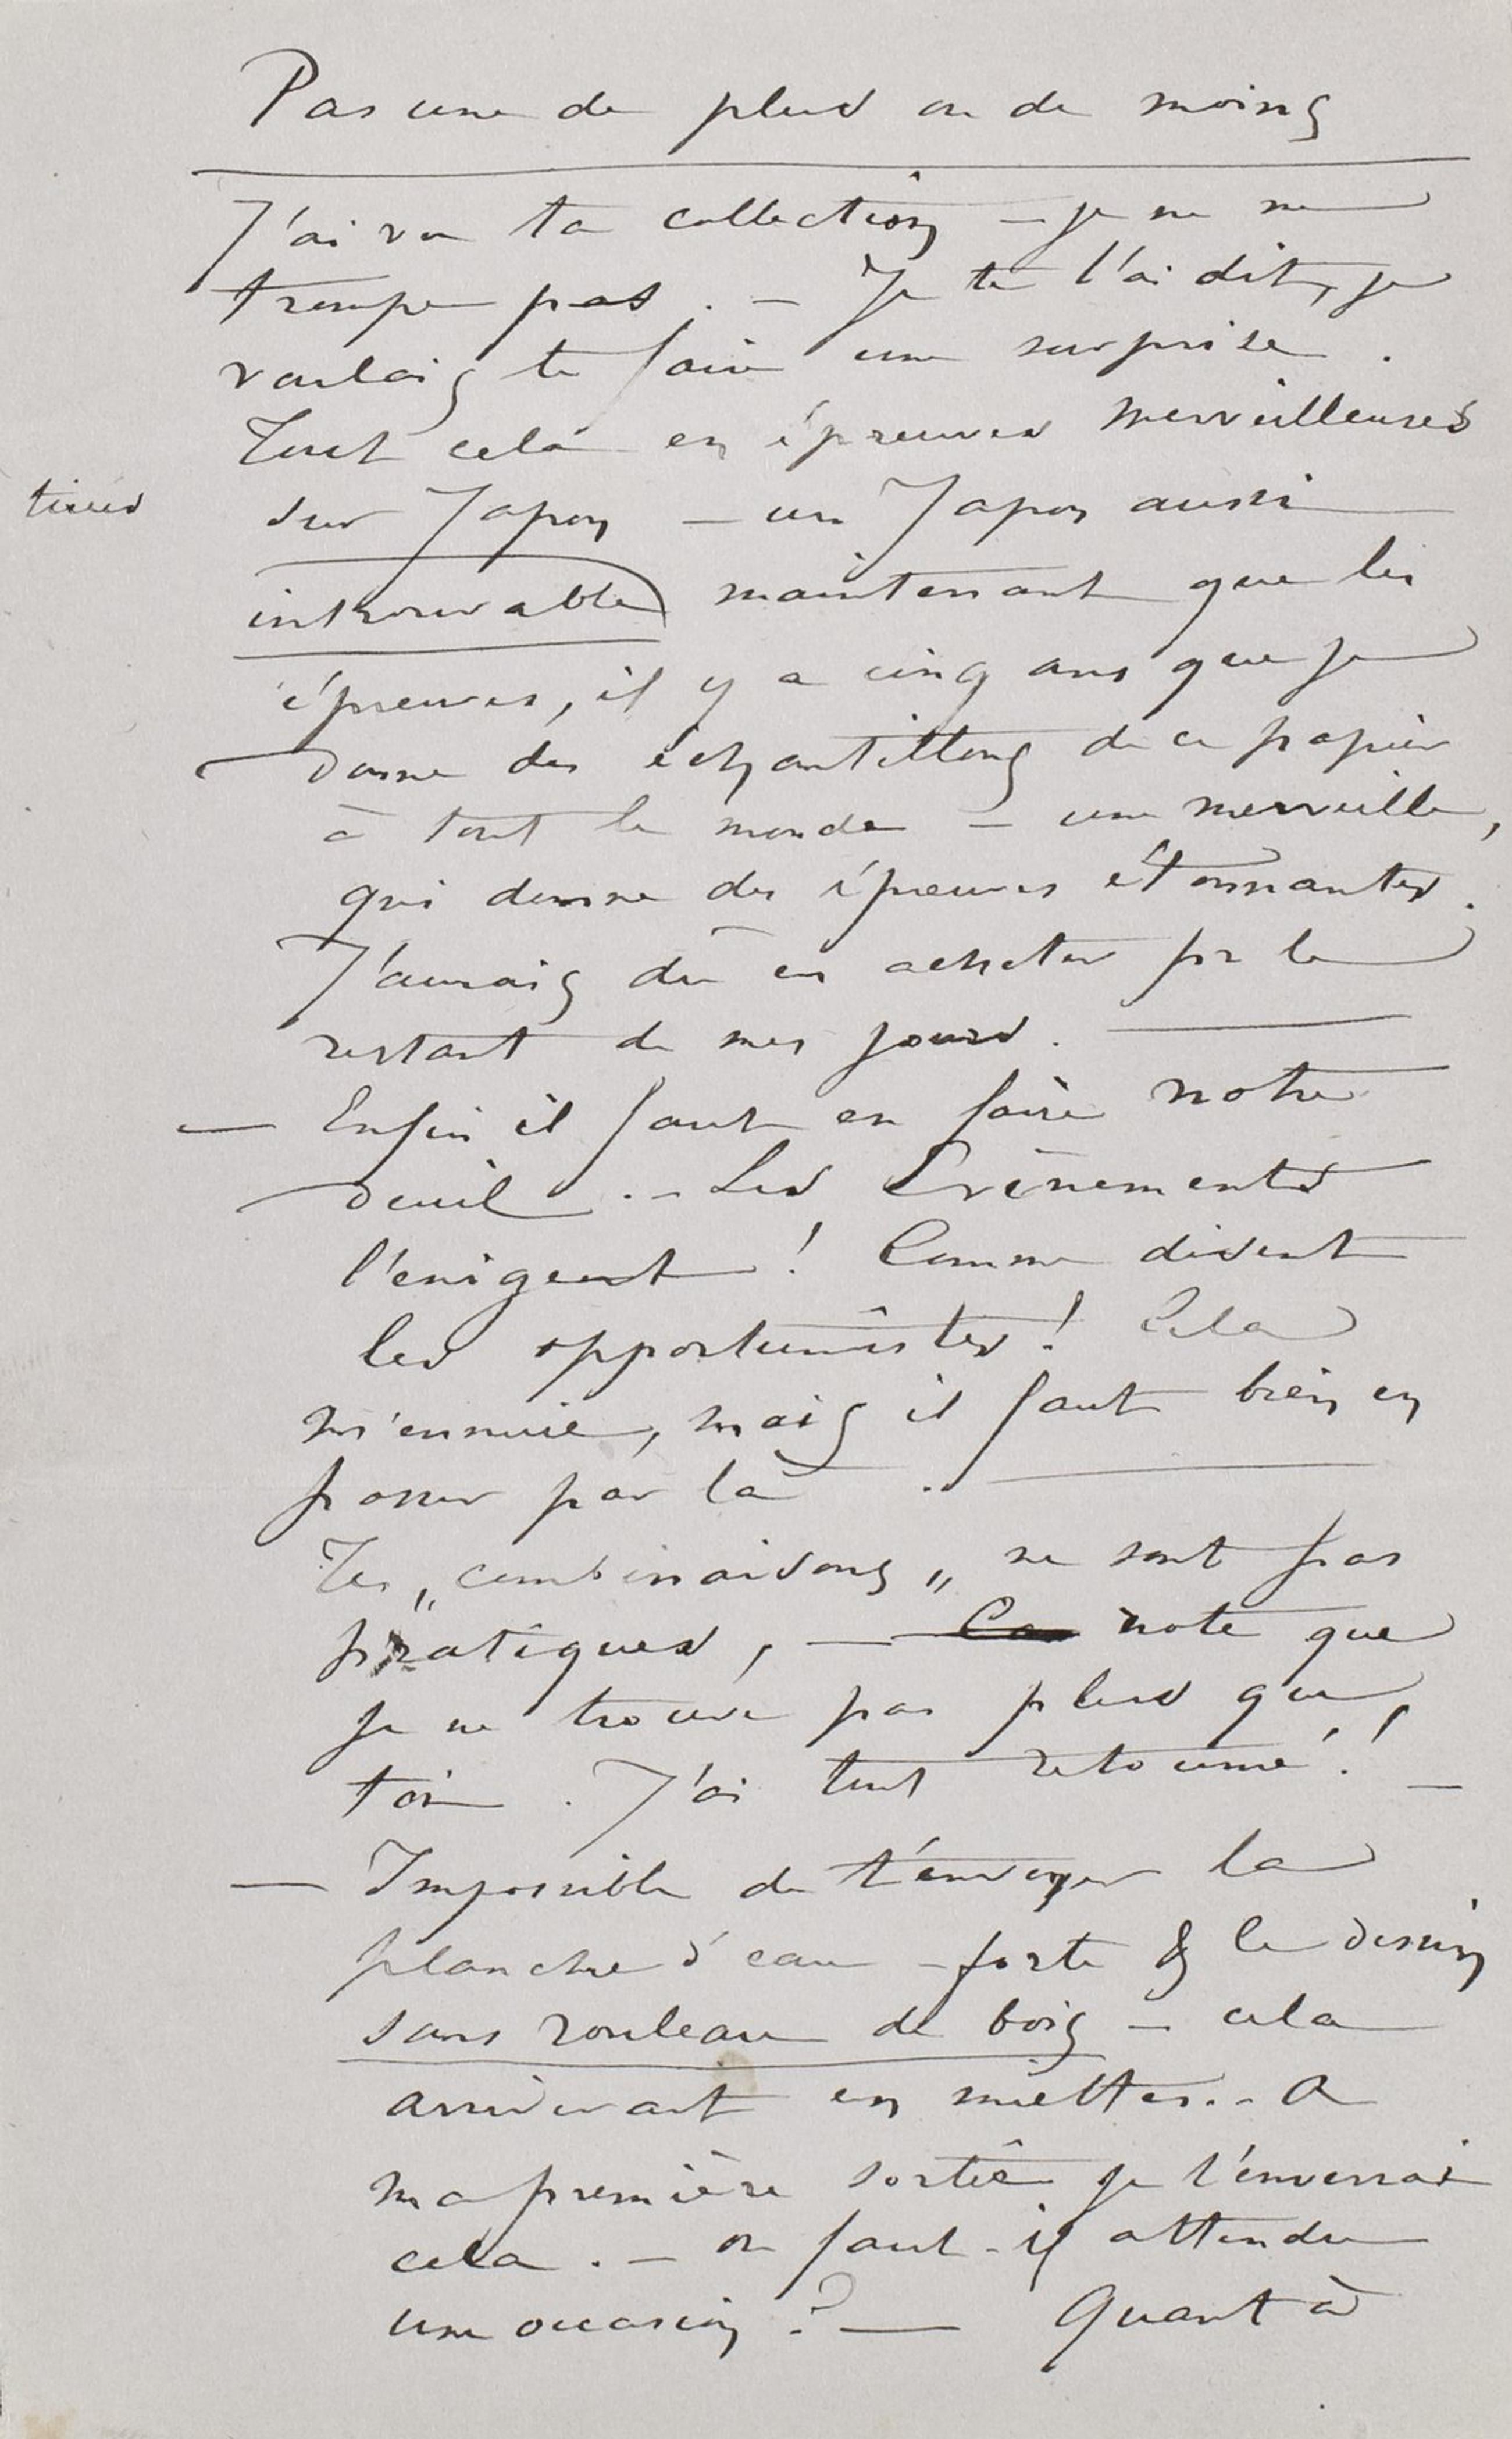 Pas une de plus ou de moins
J'ai vu ta collection – je ne me
trompe pas. – Je te l'ai dit, je
voulais te faire une surprise.
Tout cela en épreuves merveilleuses
tirées sur Japon – un Japon aussi
introuvable maintenant que les
épreuves, il y a cinq ans que je
donne des échantillons de ce papier
à tout le monde – une merveille,
qui donne des épreuves étonnantes.
J'aurais dû en acheter pr le
restant de mes jours. —
— Enfin il faut en faire notre
deuil. – Les Evènements
l'exigent ! Comme disent
les opportunistes ! Cela
m'ennuie, mais il faut bien en
passer par là. —
Tes „combinaisons„ ne sont pas
pratiques, — note que
je ne trouve pas plus que
toi. J'ai tout retourné ! –
— Impossible de t'envoyer la
planche d'eau-forte & le dessin
sans rouleau de bois – cela
arriverait en miettes. – A
ma première sortie je t'enverrai
cela. – ou faut-il attendre
une occasion ? — Quant à